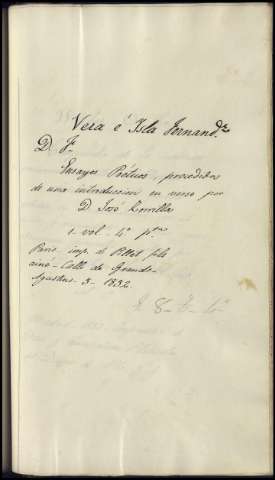 Vera é Isla Fernandz
D. Fo
Ensayos Poéticos, precedidos
de una introduccion en verso por
D. José Zorrilla
1. vol. 4º pno
Paris imp. de Pillet fils
ainé - Calle de Grands
Agustins - 5 - 1852